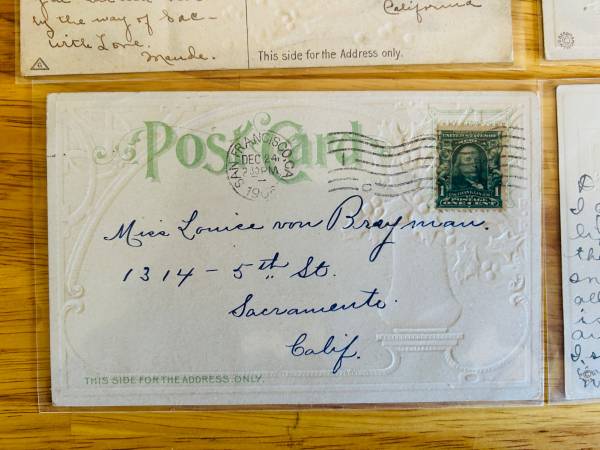 by the way of Sac-
with Love.
Maude.
California
This side for the Address only.
Post Card
SAN FRANCISCO, CA
DEC 24
PM
UNITED STATES OF
1
FRANKLIN
POSTAGE
ONE CENT
Miss Louise von Brayman.
1314 - 5th St.
Sacramento.
Calif.
THIS SIDE FOR THE ADDRESS ONLY.
I
all
is